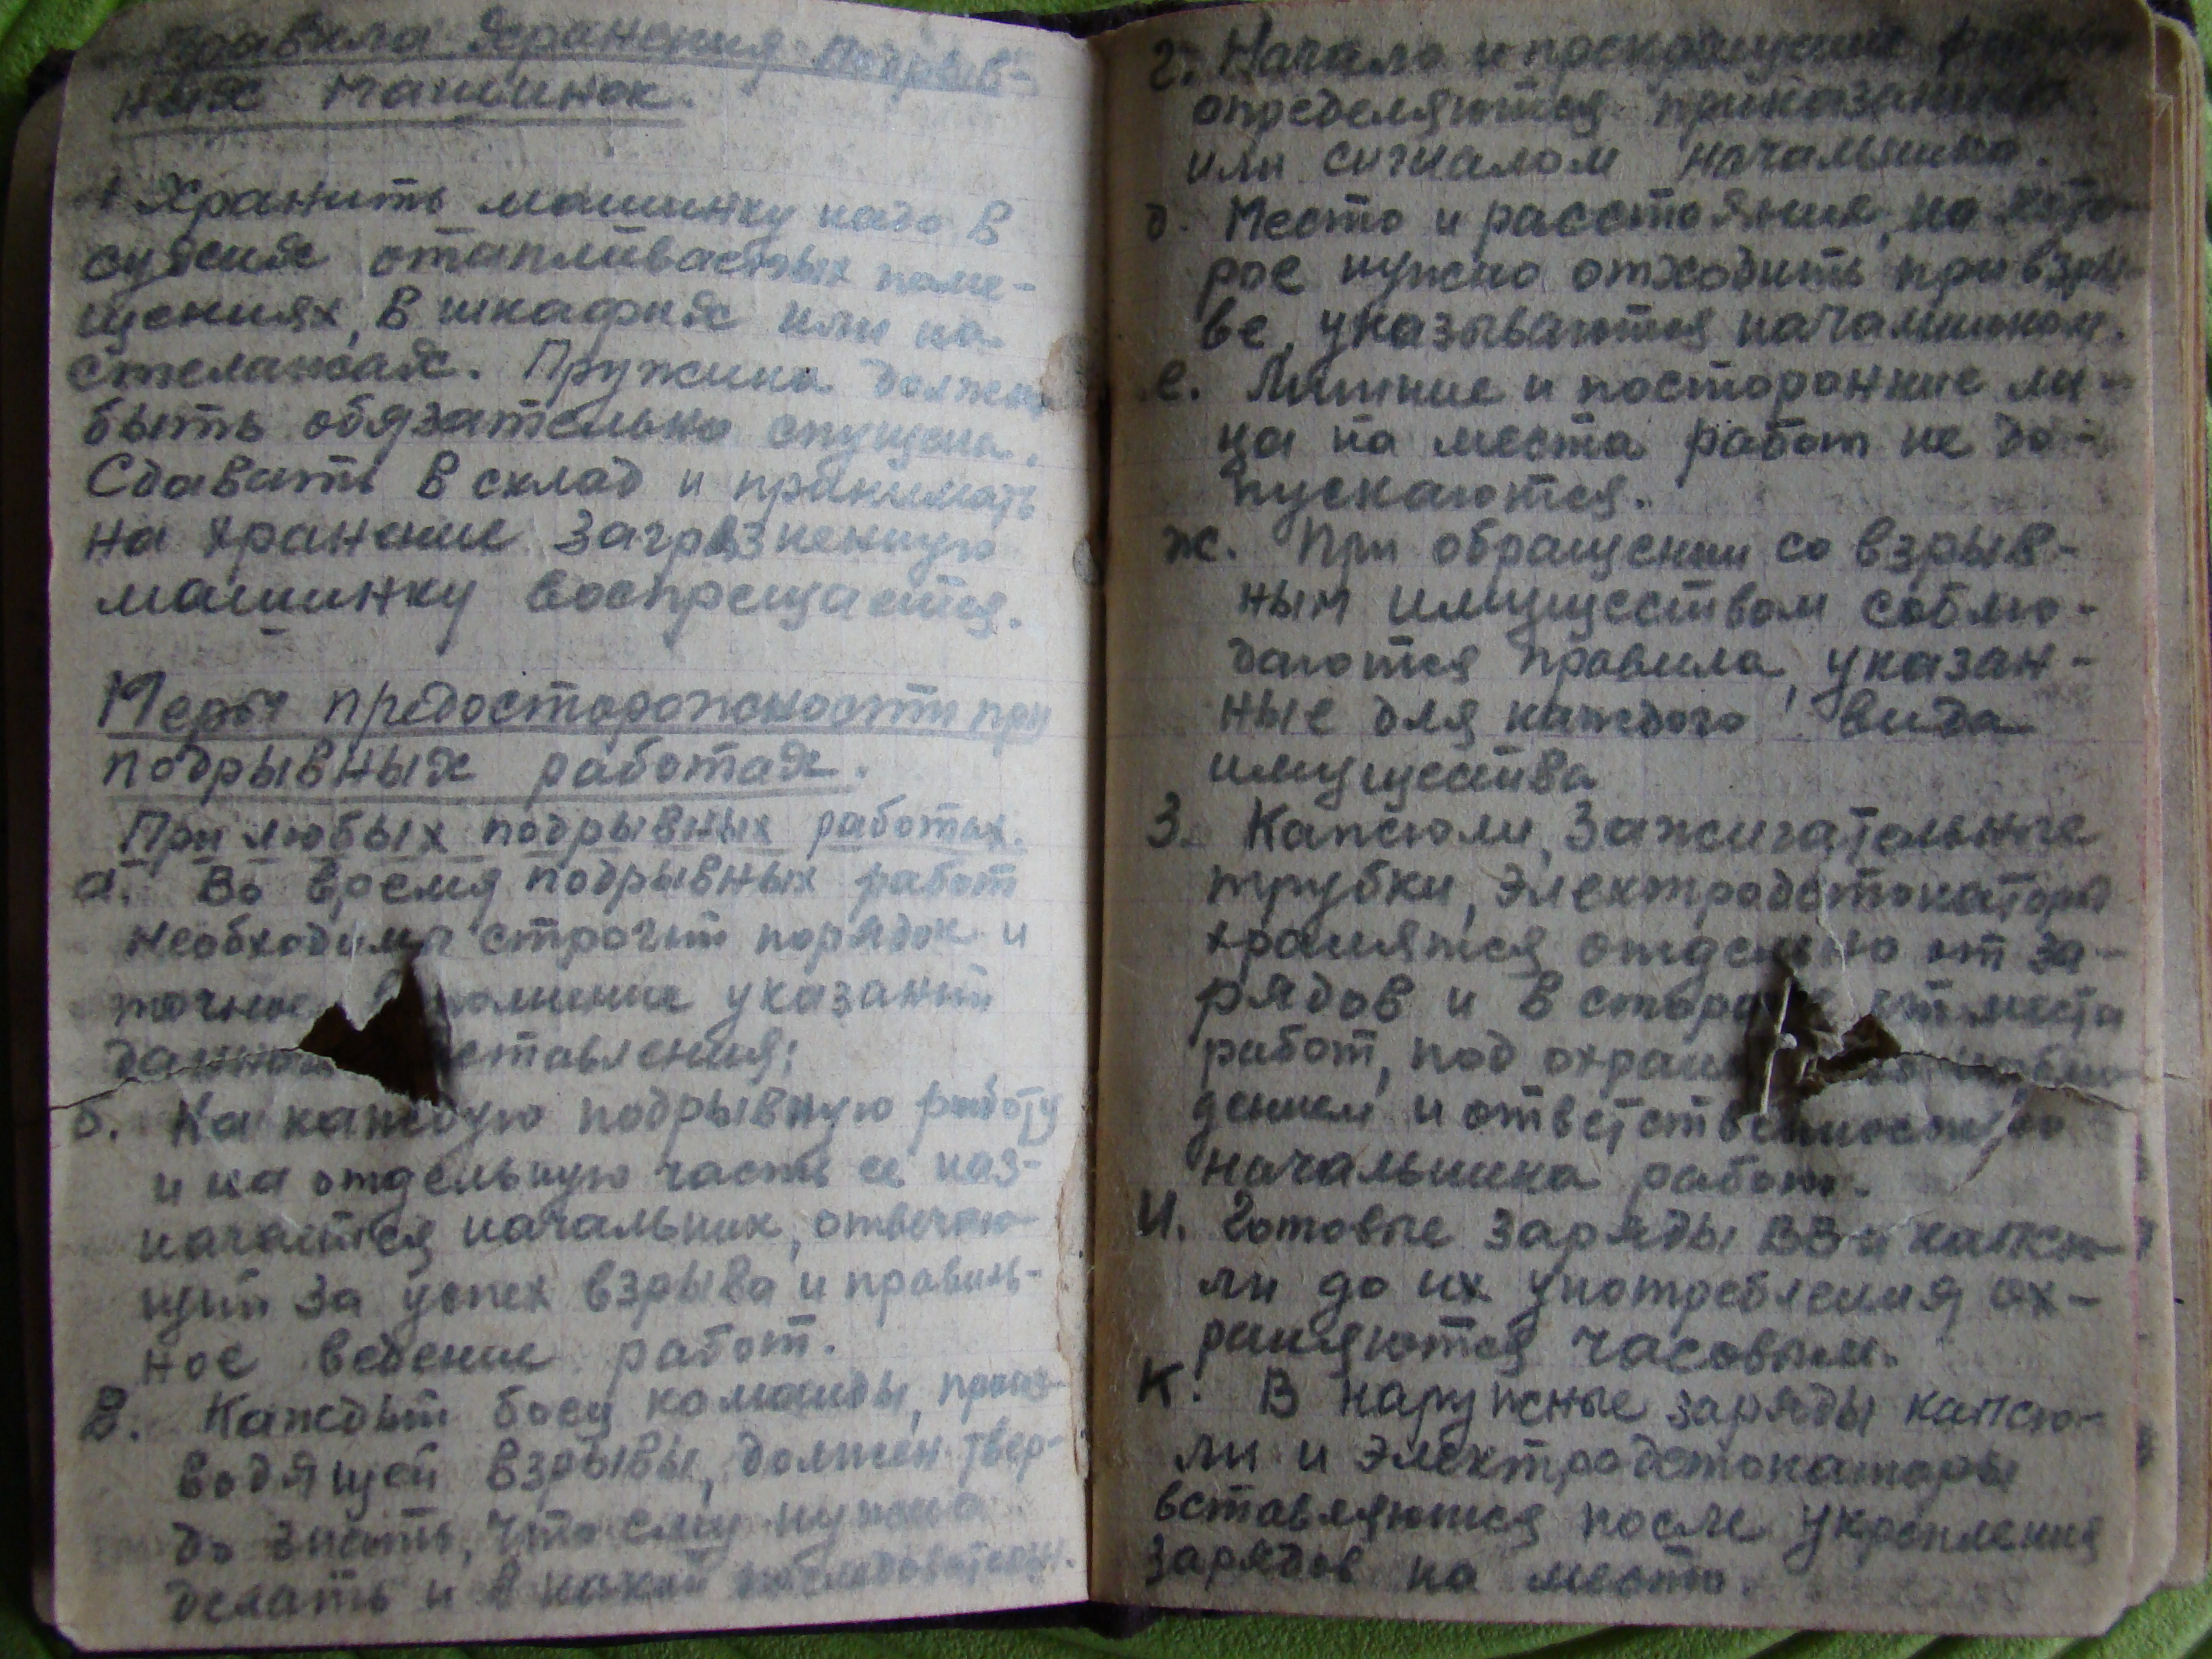 Правила хранения подрыв-
ных машинок.
1 Хранить машинку надо в
сухих отапливаемых поме-
щениях, в шкафах или на
стелажах. Пружина должна
быть обязательно спущена.
Сдавать в склад и принимать
на хранение загрязненную
машинку воспрещается.
Меры предосторожности при
подрывных работах.
При любых подрывных работах.
а. Во время подрывных работ
необходимы строгий порядок и
точное указаний
ставления;
б. На каждую подрывную работу
и на отдельную часть ее наз-
начается начальник, отвечаю-
щий за успех взрыва и правиль-
ное ведение работ.
В. Каждый боец команды, произ-
водящей взрывы, должен твер-
до знать, что ему нужно
делать и в какой последовательн.
г. Начало и прекращение работ
определяются приказанием
или сигналом начальника.
д. Место и расстояния, на кото-
рое нужно отходить при взры-
ве, указываются начальником.
е. Лишние и посторонние ли-
ца на места работ не до-
пускаются.
ж. При обращении со взрыв-
ным имуществом соблю-
даются правила, указан-
ные для каждого вида
имущества
З. Капсюли, зажигательные
трубки, электродетонаторы
хранятся отдельно от за-
рядов и в стороне от места
работ, под охраной наблю-
дением и ответственностью
начальника работ.
И. Готовые заряды ВВ и капсю-
ли до их употребления ох-
раняются часовым.
К. В наружные заряды капсю-
ли и электродетонаторы
вставляются после укрепления
зарядов на место.